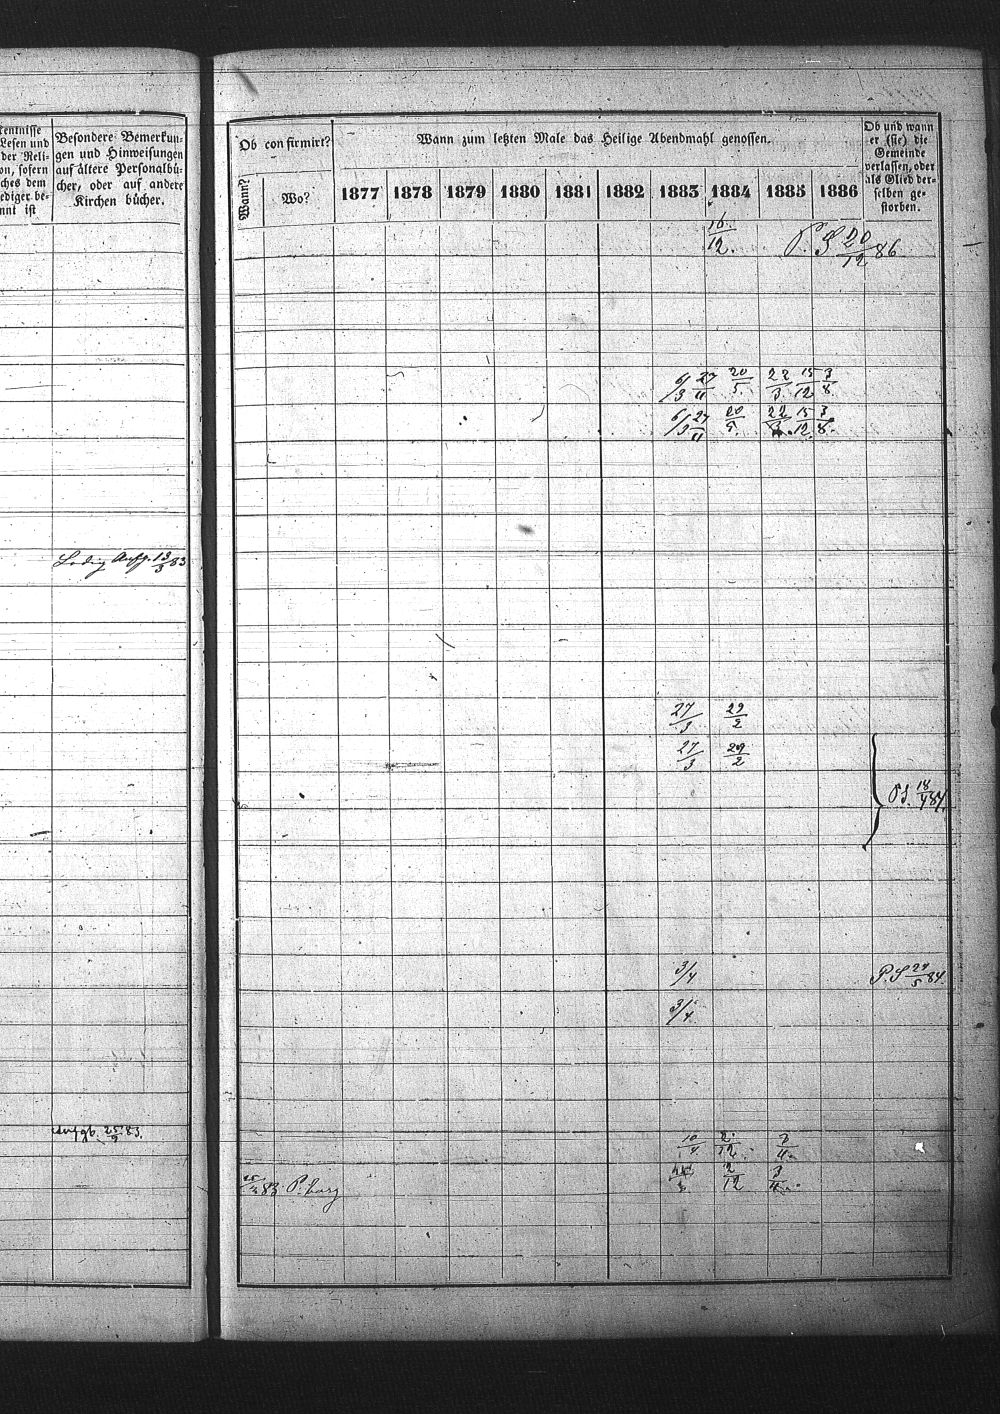 kenntnisse
Lesen und
der Reli-
on, sofern
ches dem
ediger be-
nnt ist
Besondere Bemerkun-
gen und Hinweisungen
auf ältere Personalbü-
cher, oder auf andere
Kirchen bücher.
Ledig Aufg. 13/3 83
Aufgb. 25/9 83.
Ob confirmirt?
Wann?
Wo?
Wann zum letzten Male das Heilige Abendmahl genossen.
1877 1878 1879 1880 1881 1882 1883 1884 1885 1886
Ob und wann
er (sie) die
Gemeinde
verlassen, oder
als Glied der-
selben ge-
storben.
16/12. P. S 20/12 86
6/3 27/11 20/5. 22/3. 15/12 3/8
6/3 27/11 20/5. 22/3. 15/12 3/8.
27/3 29/2
27/3 29/2
PS. 18/4 84.
3/4 P. S 27/5 84.
3/4.
10/4 2/12. 3/4.
83 P. burg 2/12 3/4.